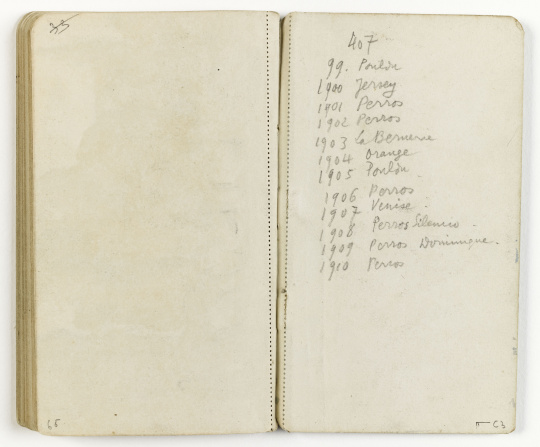 33
407
99. Pouldu
1900 Jersey
1901 Perros
1902 Perros
1903 La Bernerie
1904 Orange
1905 Pouldu.
1906 Perros
1907 Venise.
1908 Perros Silencio.
1909 Perros Dominique.
1910 Perros
65
63